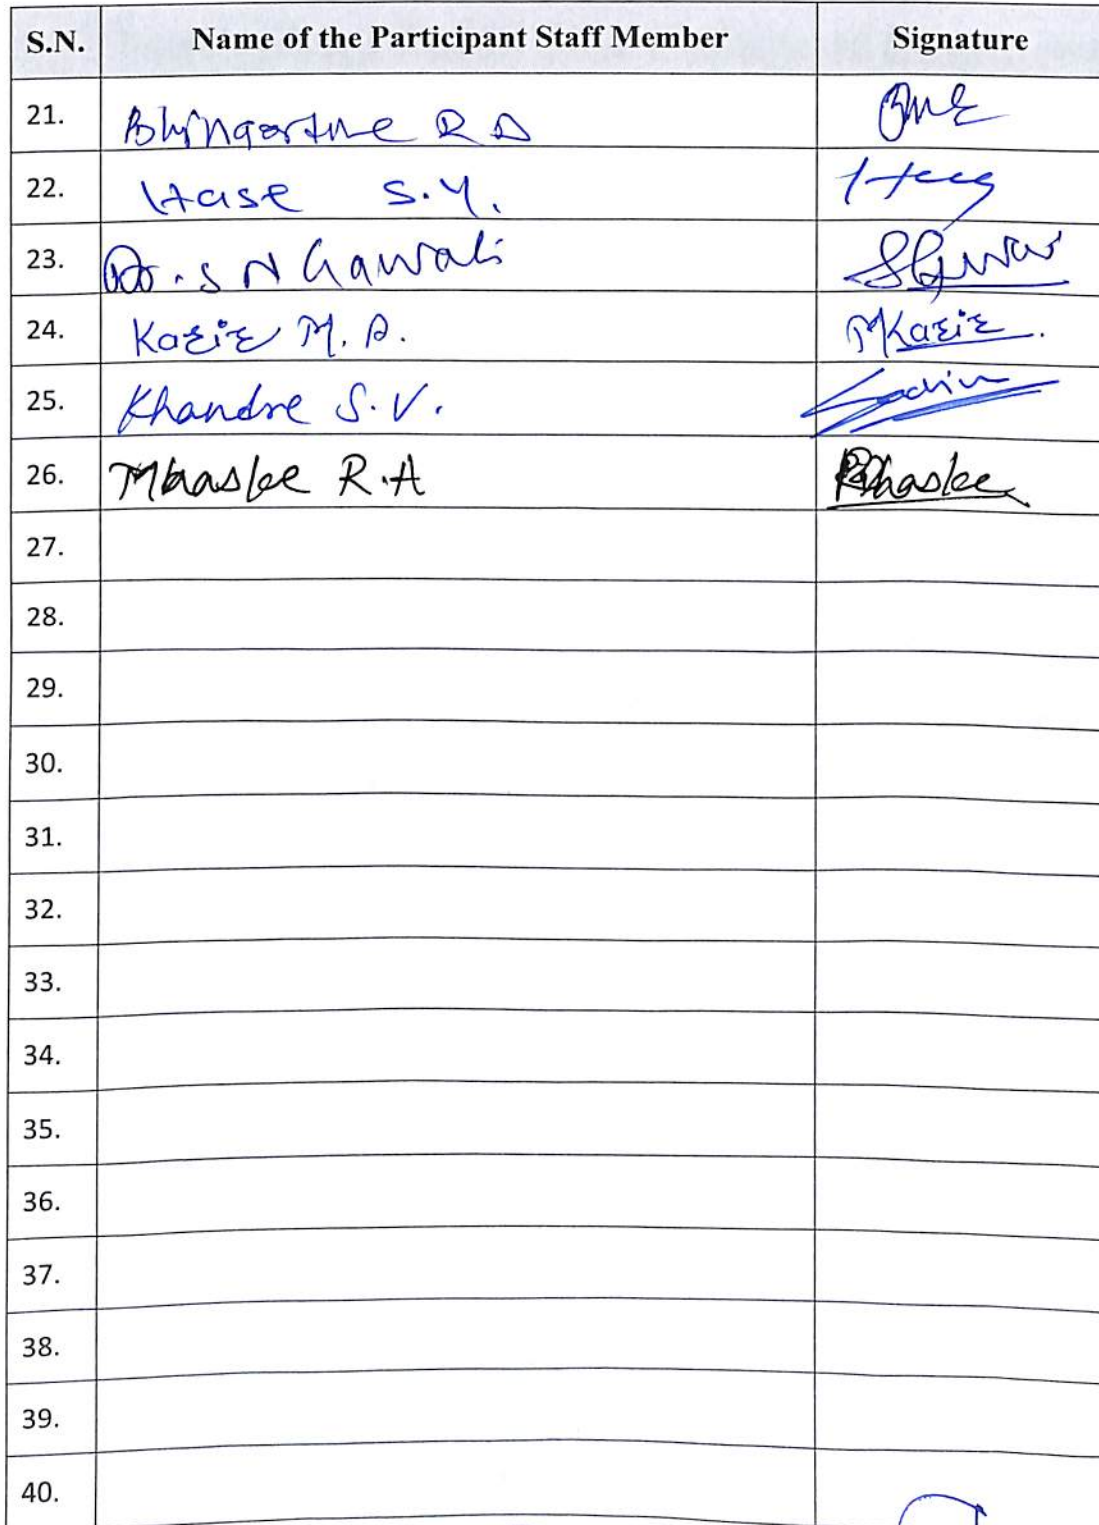 S.N. Name of the Participant Staff Member Signature
21. R D
22. Hase S.Y.
23. Dr. S N Gawali
24. Kazi M. A. MKazi
25. Khandre S.V. Sachin
26. Mhaske R.A RMhaske
27.
28.
29.
30.
31.
32.
33.
34.
35.
36.
37.
38.
39.
40.